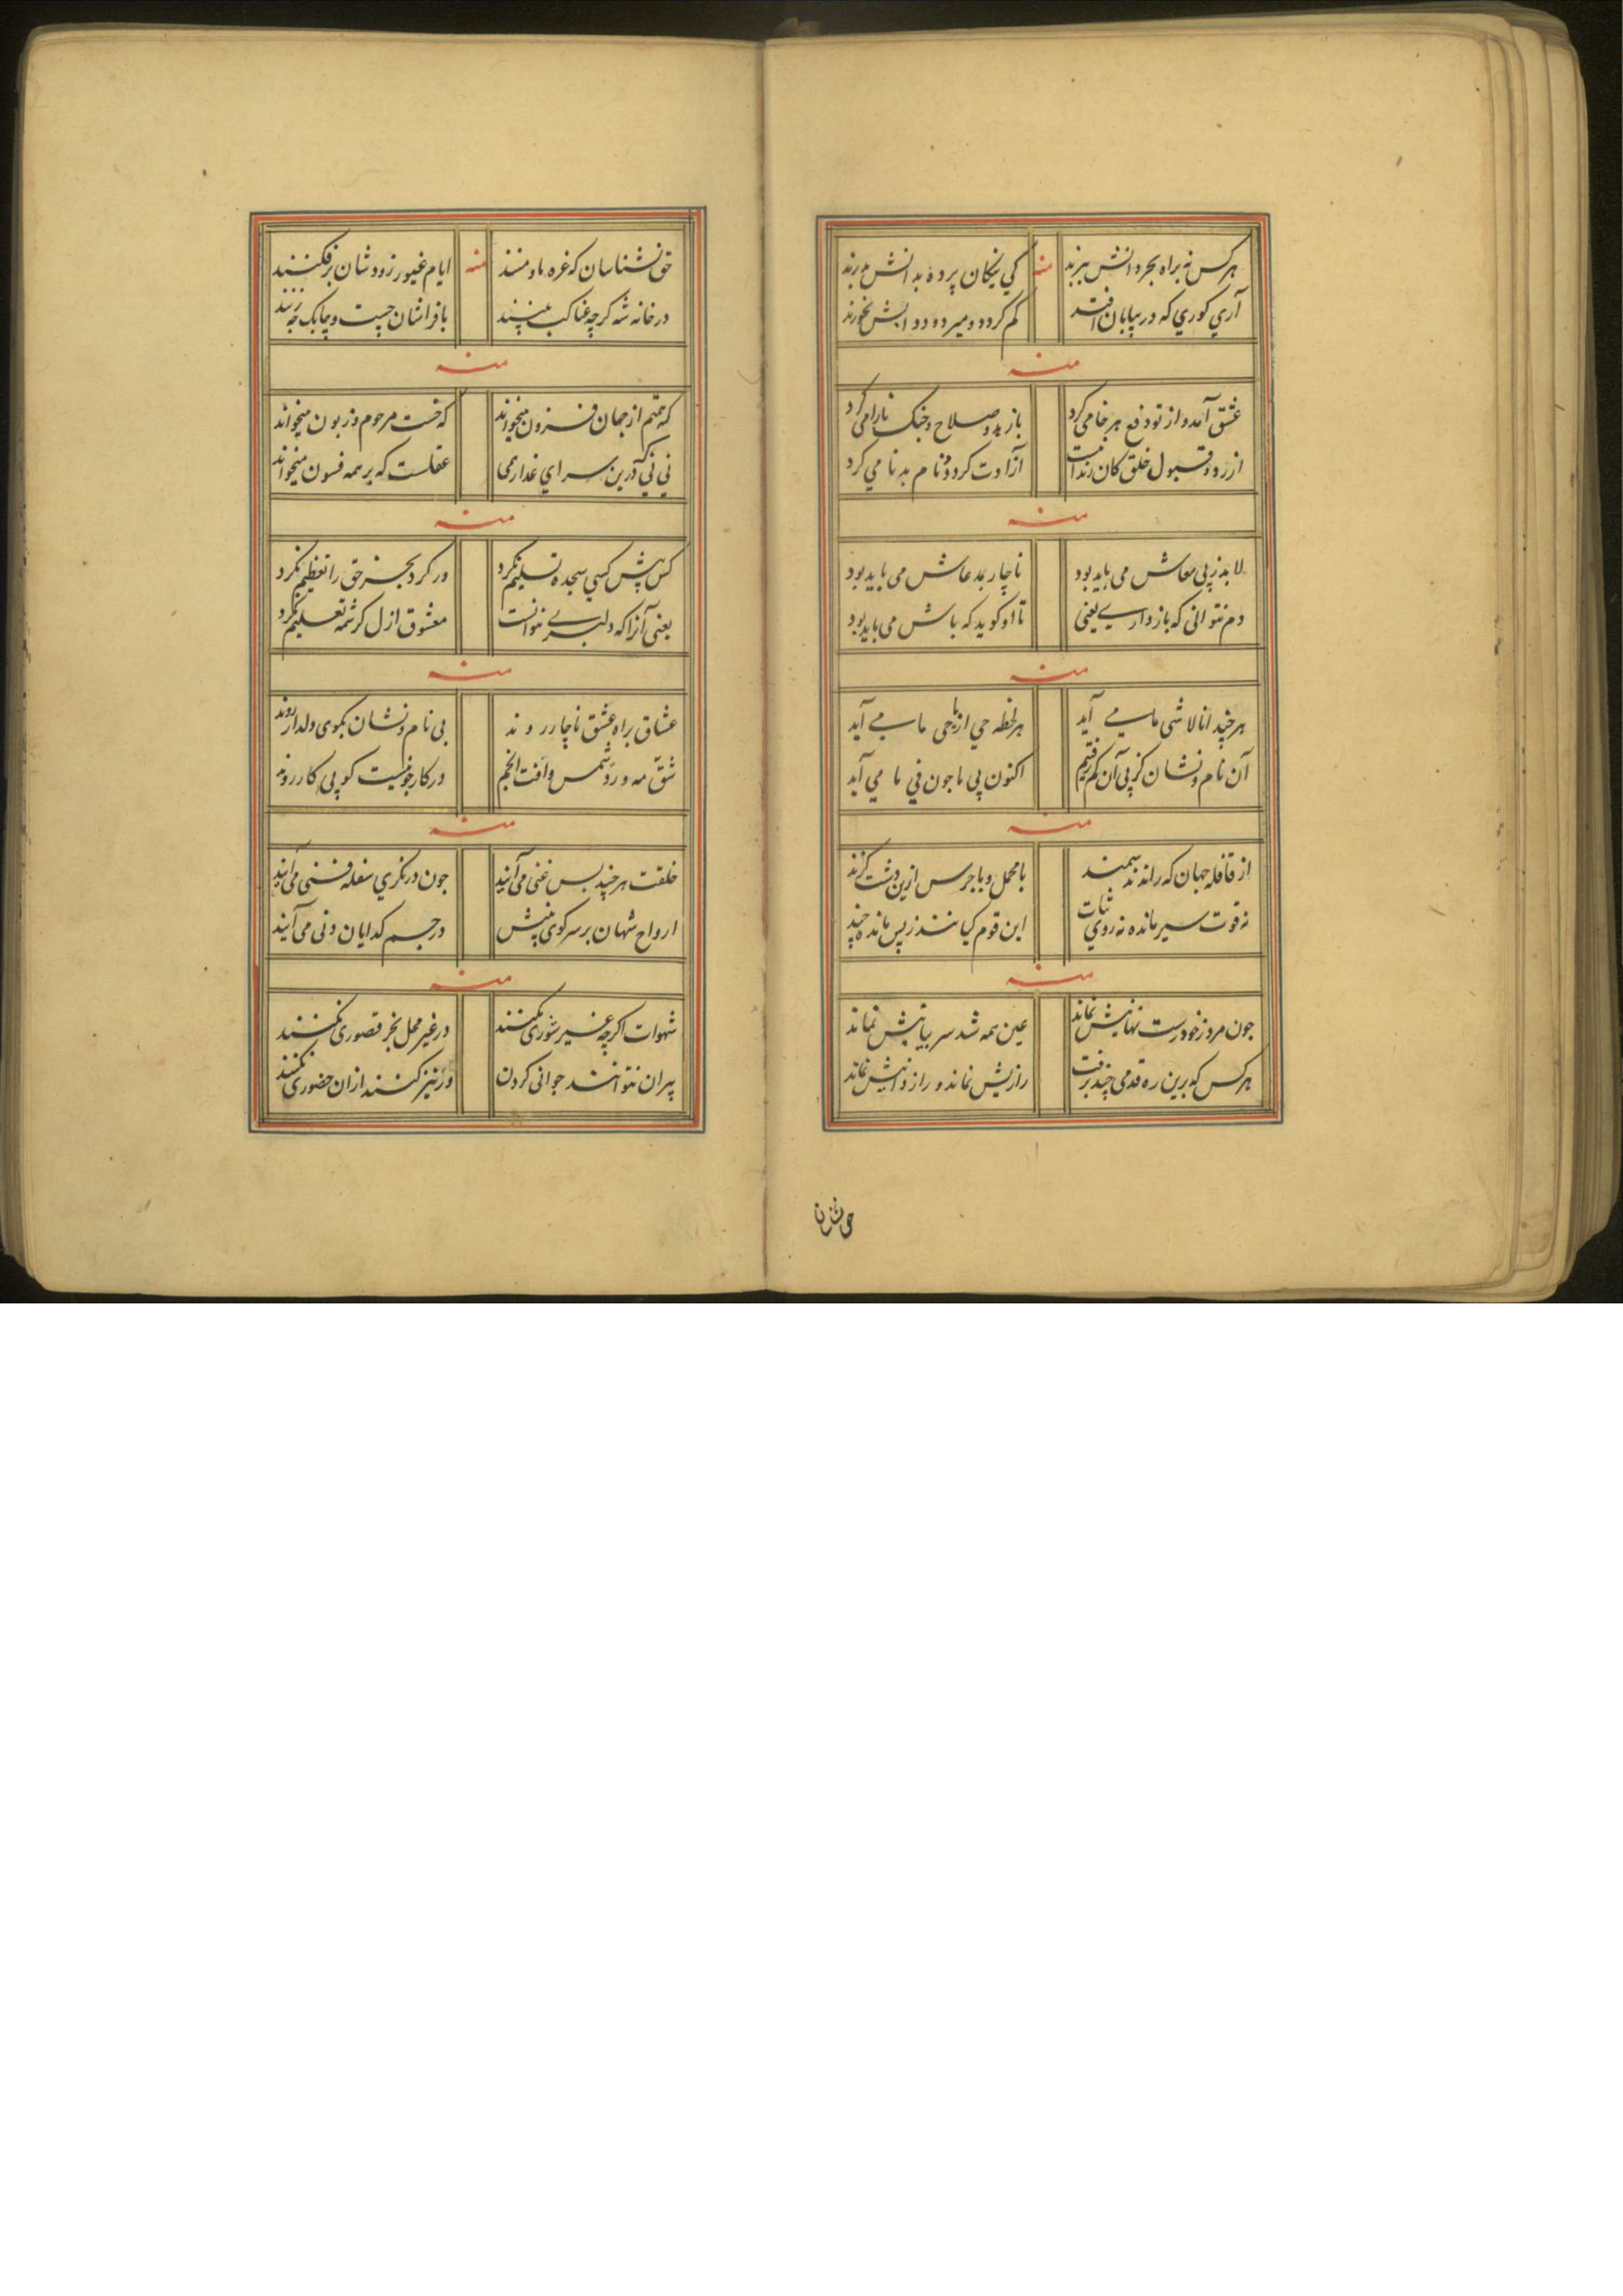 هرکس نه براه بحر دانش ببرند کی نیکان پرده بدانش درند
آری کوری که در بیابان افتد کم کردد و میرد و دوابش نخورند
منه
منه
عشق آمد و از تو دفع هر خامی کرد باز بد و صلاح و جنک نارامی کرد
از رد و قبول خلق کان زندانست آزادت کرد و نام بدنامی کرد
منه
لابد ز پی معاش می باید بود ناچار بمدعاش می باید بود
دم نتوانی که باز داری یعنی تا او کوید که باش می باید بود
منه
هر چند انا لاشی ما می آید هر لحظه حی از یاحی ما می آید
آن نام و نشان کز پی آن کم رفتیم اکنون پی ما جون فی ما می آید
منه
از قافله جهان که رانند سمند با محمل و با جرس ازین دشت کزند
نه قوت سیر مانده نه روی ثبات این قوم کیانند ز پس مانده چند
منه
جون مرد ز خود رست نهانیش نماند عین همه شد سر بیانیش نماند
هرکس که برین ره قدمی چند برفت رازیش نماند و رازدانیش نماند
حق نشناسان
حق نشناسان که غره ما و منند ایام غیور زود شان برفکنند
در خانه شه کرچه عناکب بینند با فراشان چست و چابک چه زنند
منه
منه
که همتم از جهان فزون میخواند که خست مرحوم و زبون میخواند
نی نی که درین سرای غدار همی عقلست که بر همه فسون میخواند
منه
کس پیش کسی سجده تسلیم نکرد ور کرد بجز حق را تعظیم نکرد
یعنی آنرا که دلبری نتوانست معشوق ازل کرشمه تعلیم نکرد
منه
عشاق براه عشق ناچار روند بی نام و نشان بکوی دلدار روند
شق مه و رد شمس و افت انجم در کار جو نیست کو پی کار روند
منه
خلقت هر چند بس غنی می آیند جون درنکری سفله فنی می آیند
ارواح شهان بر سر کوی منش در جسم کدایان دنی می آیند
منه
شهوات اکرچه غیر شوری نکنند در غیر محل بجز قصوری نکنند
پیران نتوانند جوانی کردن ور نیز کنند ازان حضوری نکنند